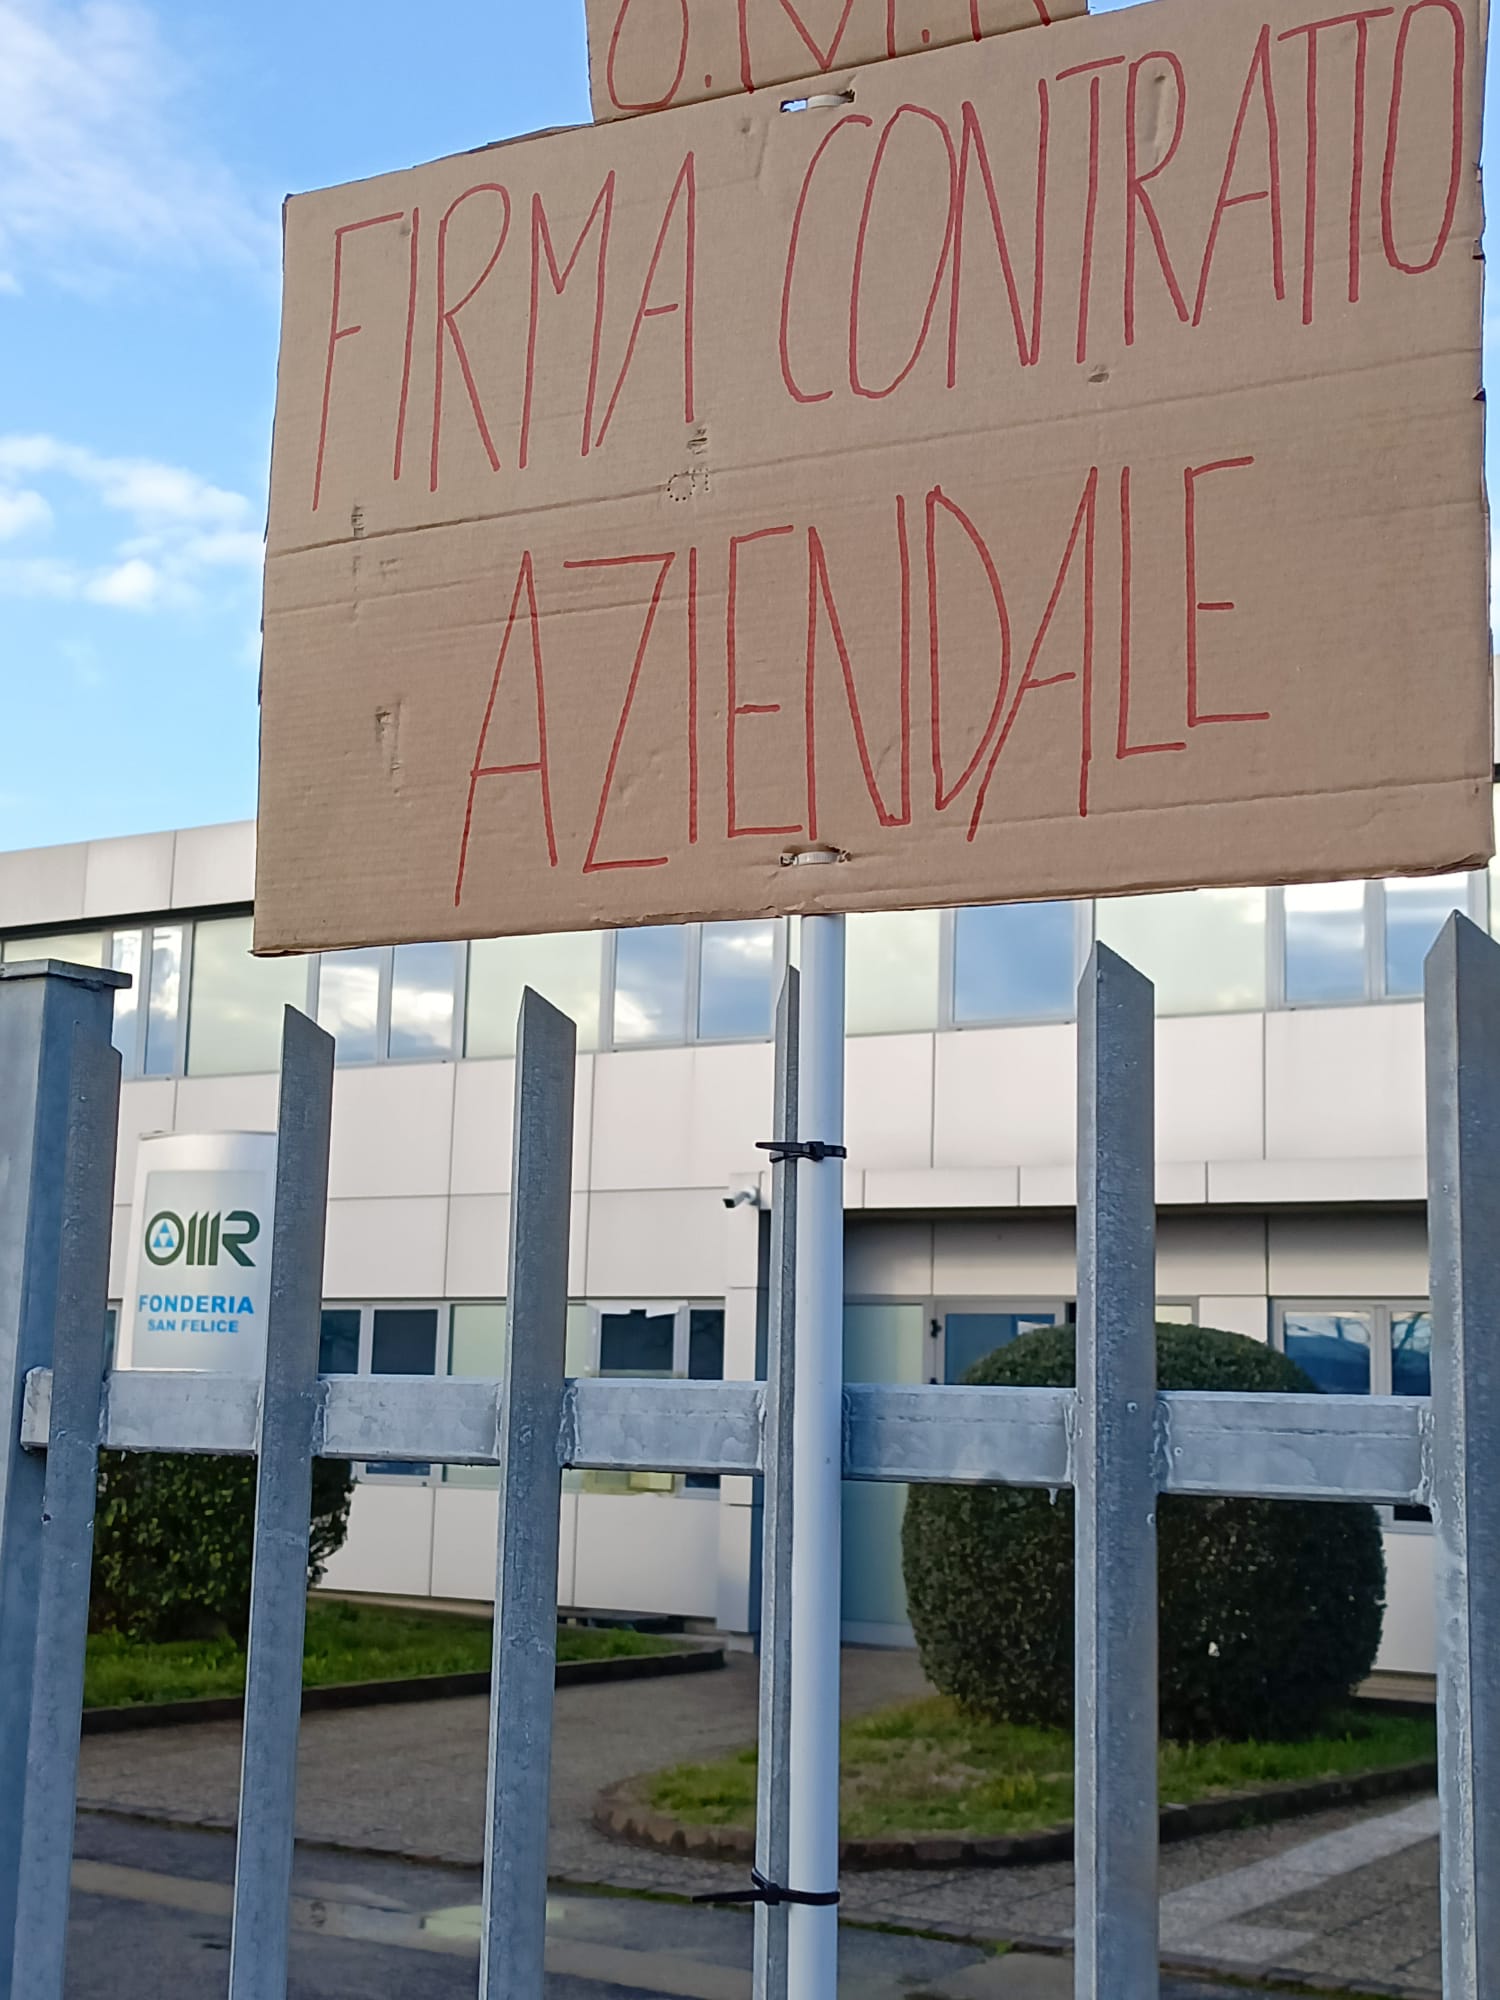 O.M.R
FIRMA CONTRATTO
AZIENDALE
OMR
FONDERIA
SAN FELICE